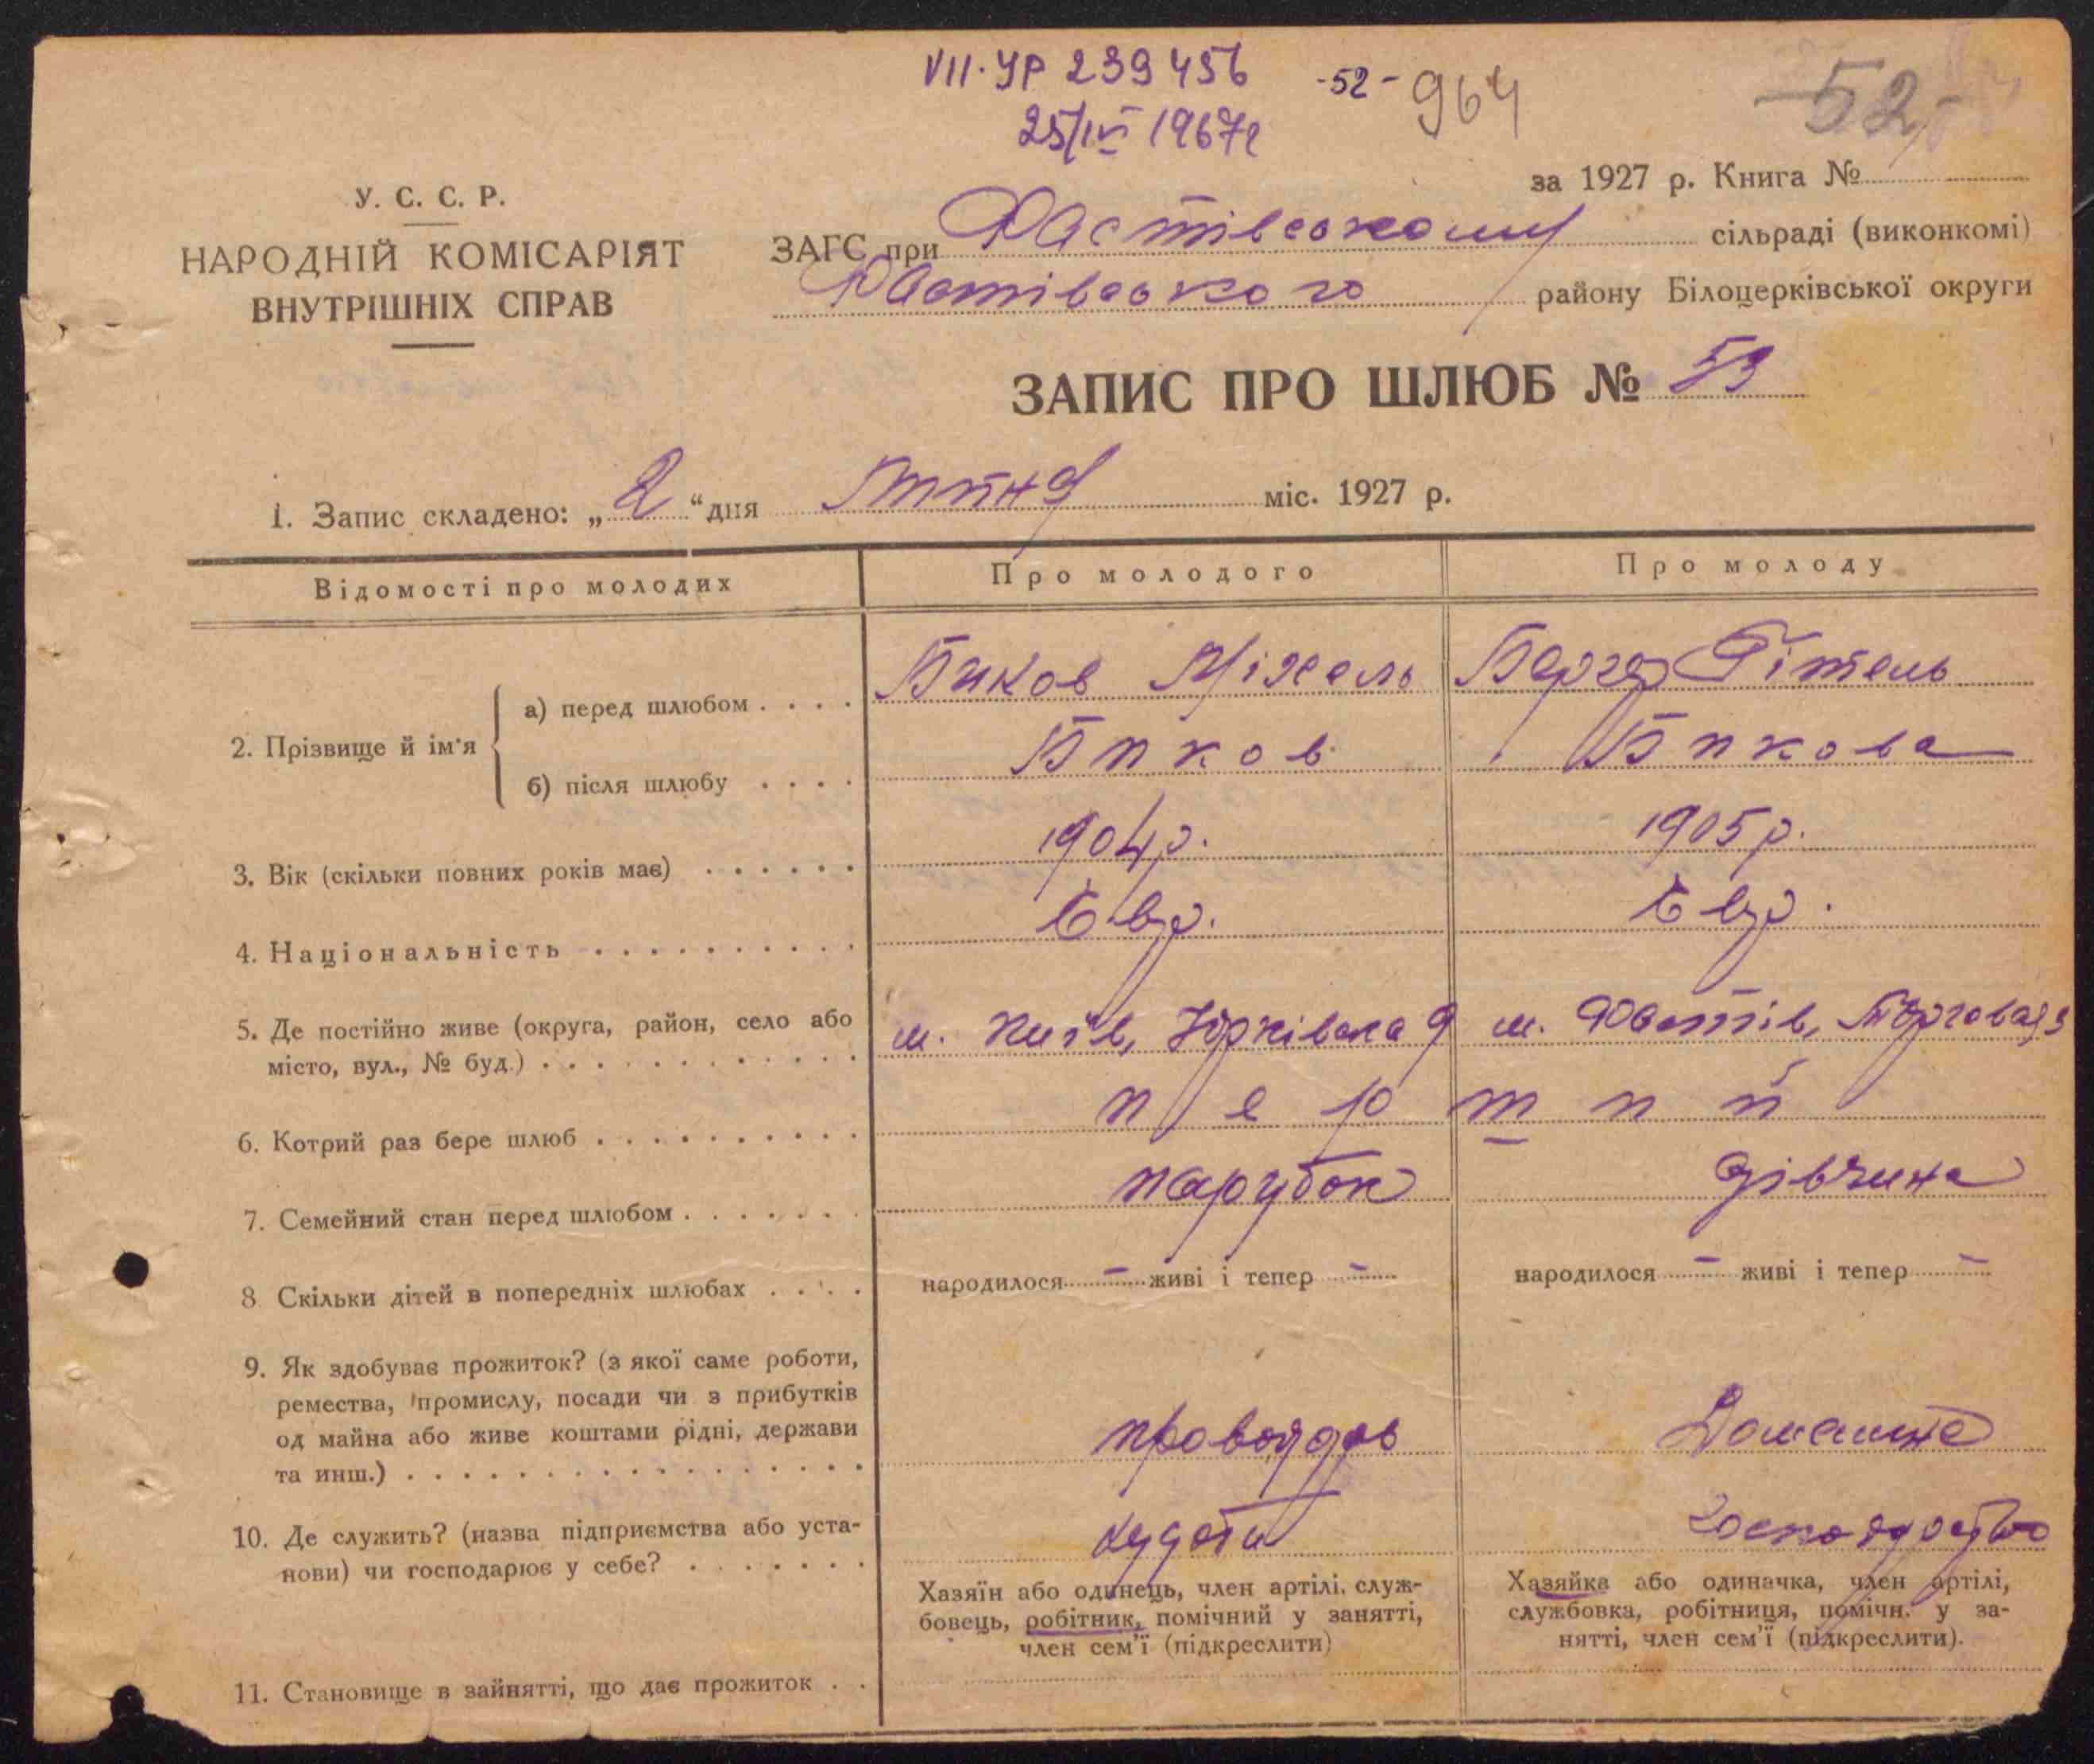 VII·УР 239456 -52- 964 -52-
25/IV 1967г
за 1927 р. Книга №
У. С. С. Р.
НАРОДНІЙ КОМІСАРІЯТ
ВНУТРІШНІХ СПРАВ
ЗАГС при Фастівському сільраді (виконкомі)
Фастівського району Білоцерківської округи
ЗАПИС ПРО ШЛЮБ № 53
1. Запис складено: „2“ дня Липня міс. 1927 р.
Відомості про молодих Про молодого Про молоду
2. Прізвище й ім'я а) перед шлюбом . . . . Биков Міхель Бергер Гітель
б) після шлюбу . . . . Биков Бикова
3. Вік (скільки повних років має) . . . . . . 1904р. 1905р.
4. Національність . . . . . . . . . . Евр. Евр.
5. Де постійно живе (округа, район, село або
місто, вул., № буд.) . . . . . . . . . . . . м. Київ, Юрківська 9 м. Фастів, Торгова
6. Котрий раз бере шлюб . . . . . . . . . . перший
7. Семейний стан перед шлюбом . . . . . . . парубок дівчина
8 Скільки дітей в попередніх шлюбах . . . . народилося — живі і тепер — народилося — живі і тепер —
9. Як здобував прожиток? (з якої саме роботи,
ремества, промислу, посади чи з прибутків
од майна або живе коштами рідні, держави
та инш.) . . . . . . . . . . . . . . . . . Домашнє
10. Де служить? (назва підприємства або уста-
нови) чи господарює у себе? . . . . . . . худоби господарство
Хазяїн або одинець, член артілі, служ-
бовець, робітник, помічний у занятті,
член сем'ї (підкреслити)
Хазяйка або одиначка, член артілі,
службовка, робітниця, помічн. у за-
нятті, член сем'ї (підкреслити).
11. Становище в зайнятті, що дає прожиток . .